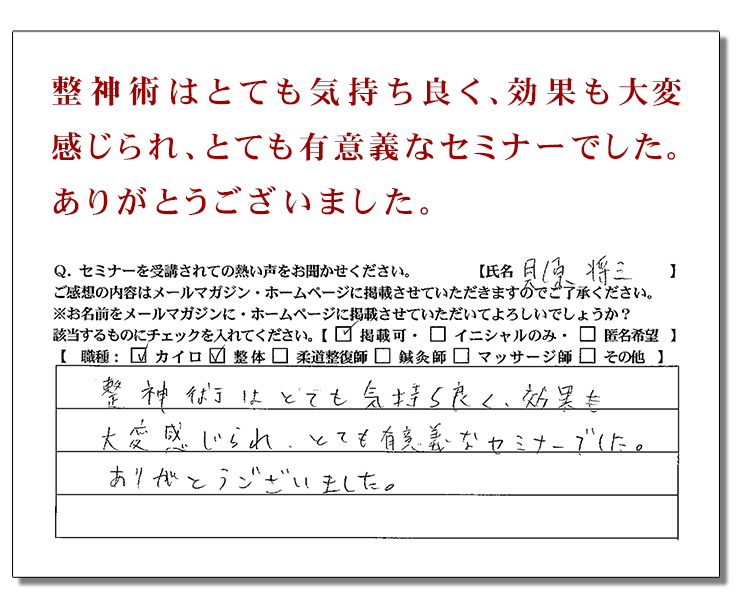 整神術はとても気持ち良く、効果も大変
感じられ、とても有意義なセミナーでした。
ありがとうございました。
Q. セミナーを受講されての熱い声をお聞かせください。 【氏名 貝原 将三 】
ご感想の内容はメールマガジン・ホームページに掲載させていただきますのでご了承ください。
※お名前をメールマガジンに・ホームページに掲載させていただいてよろしいでしょうか？
該当するものにチェックを入れてください。【 ☑ 掲載可・ □ イニシャルのみ・ □ 匿名希望 】
【 職種： ☑ カイロ ☑ 整体 □ 柔道整復師 □ 鍼灸師 □ マッサージ師 □ その他 】
整神術はとても気持ち良く、効果も
大変感じられ、とても有意義なセミナーでした。
ありがとうございました。